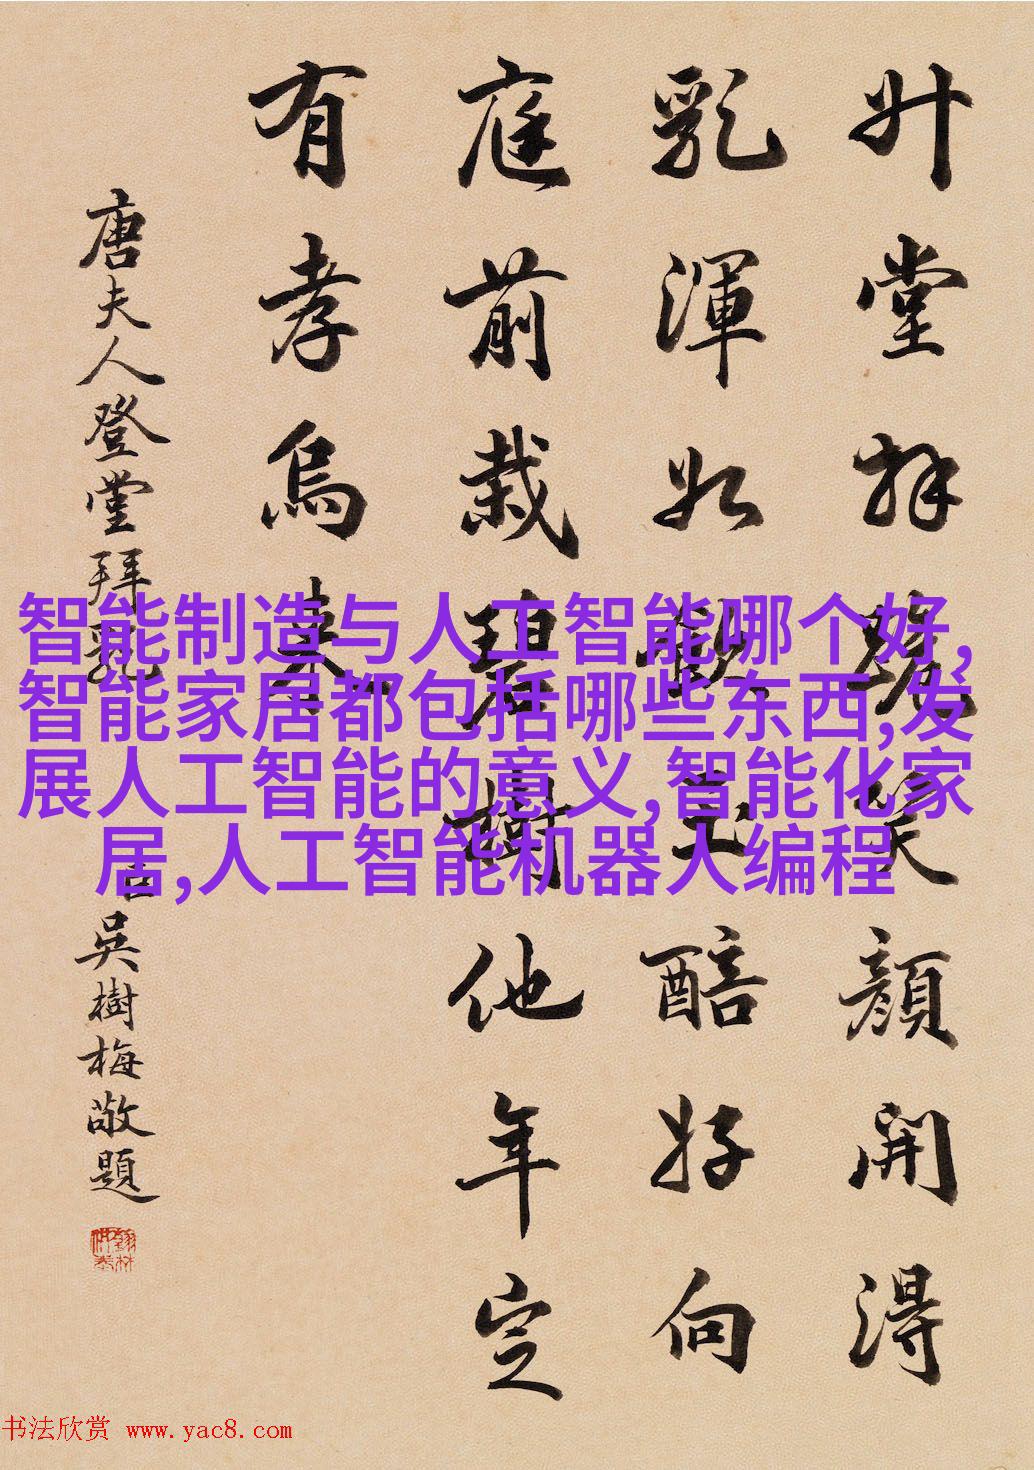 升堂拜笑顔開得
乳渾如玉醅好向
庭前栽碧樹他年定
有孝烏來
唐夫人登堂拜乳
臣吳樹梅敬題
智能制造与人工智能哪个好,
智能家居都包括哪些东西,发
展人工智能的意义,智能化家
居,人工智能机器人编程
书法欣赏 www.yac8.com